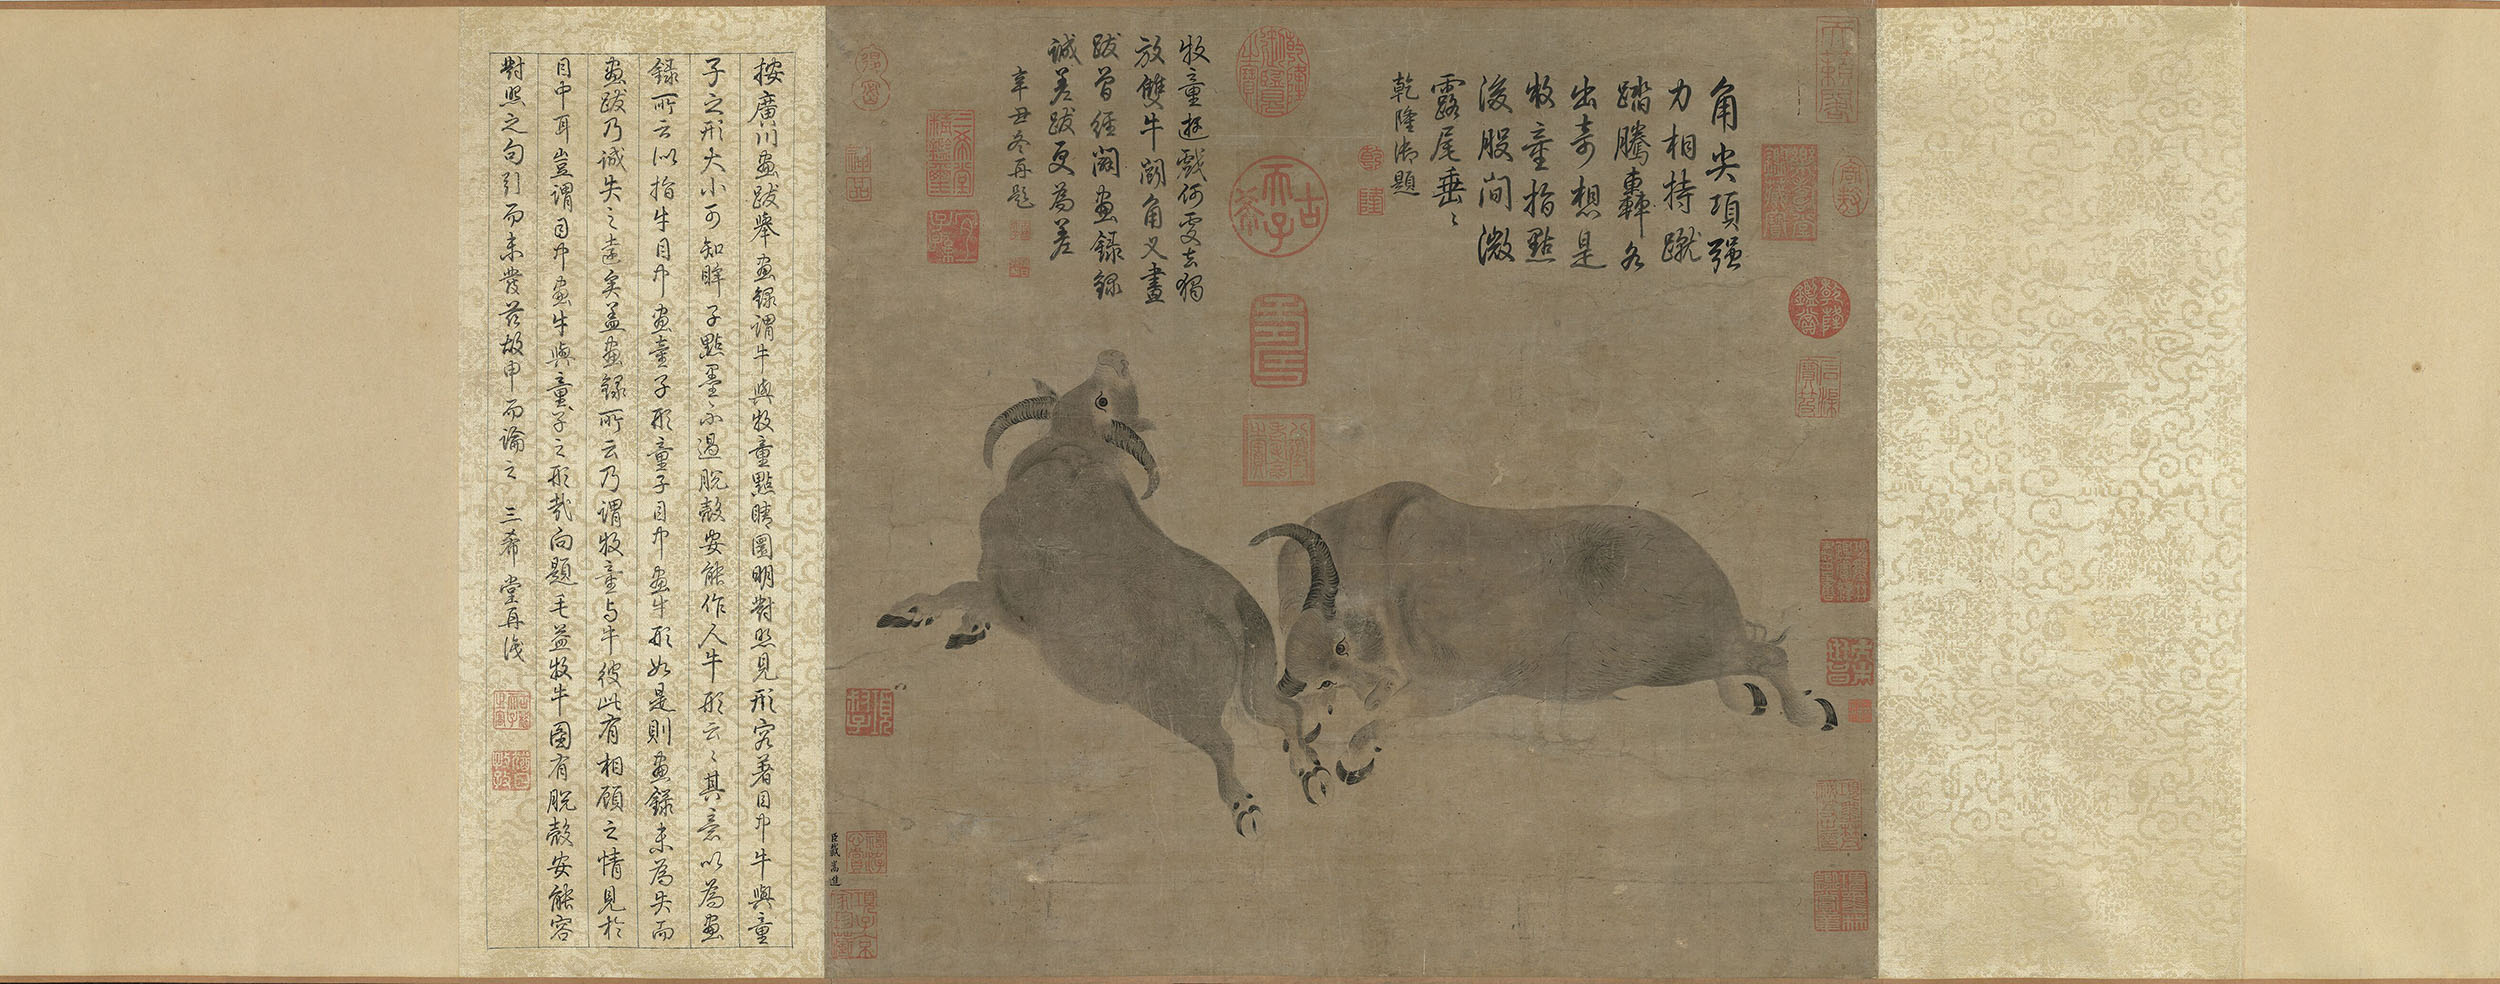 角尖項强
力相持蹴
踏騰轟各
出奇想是
牧童指點
後股間微
露尾垂〻
乾隆御題
牧童遊戲何處去獨
放雙牛鬬角叉畫
跋曾經闢畫錄錄
誠差跋更爲差
辛丑冬再題
乾隆
古希天子
壽
乾隆鑑賞
臣戴嵩進
按廣川畫跋舉畫錄謂牛與牧童點睛圓明對照見形容著目中牛與童
子之形大小可知眸子點墨不過脫殼安能作人牛形云〻其意以爲畫
錄所云似指牛目中畫童子形童子目中畫牛形如是則畫錄未爲失而
畫跋乃誠失之遠矣蓋畫錄所云乃謂牧童与牛彼此有相顧之情見於
目中耳豈謂目中畫牛與童子之形哉向題毛益牧牛圖有脫殼安能容
對照之句引而未發茲故申而論之 三希堂再識